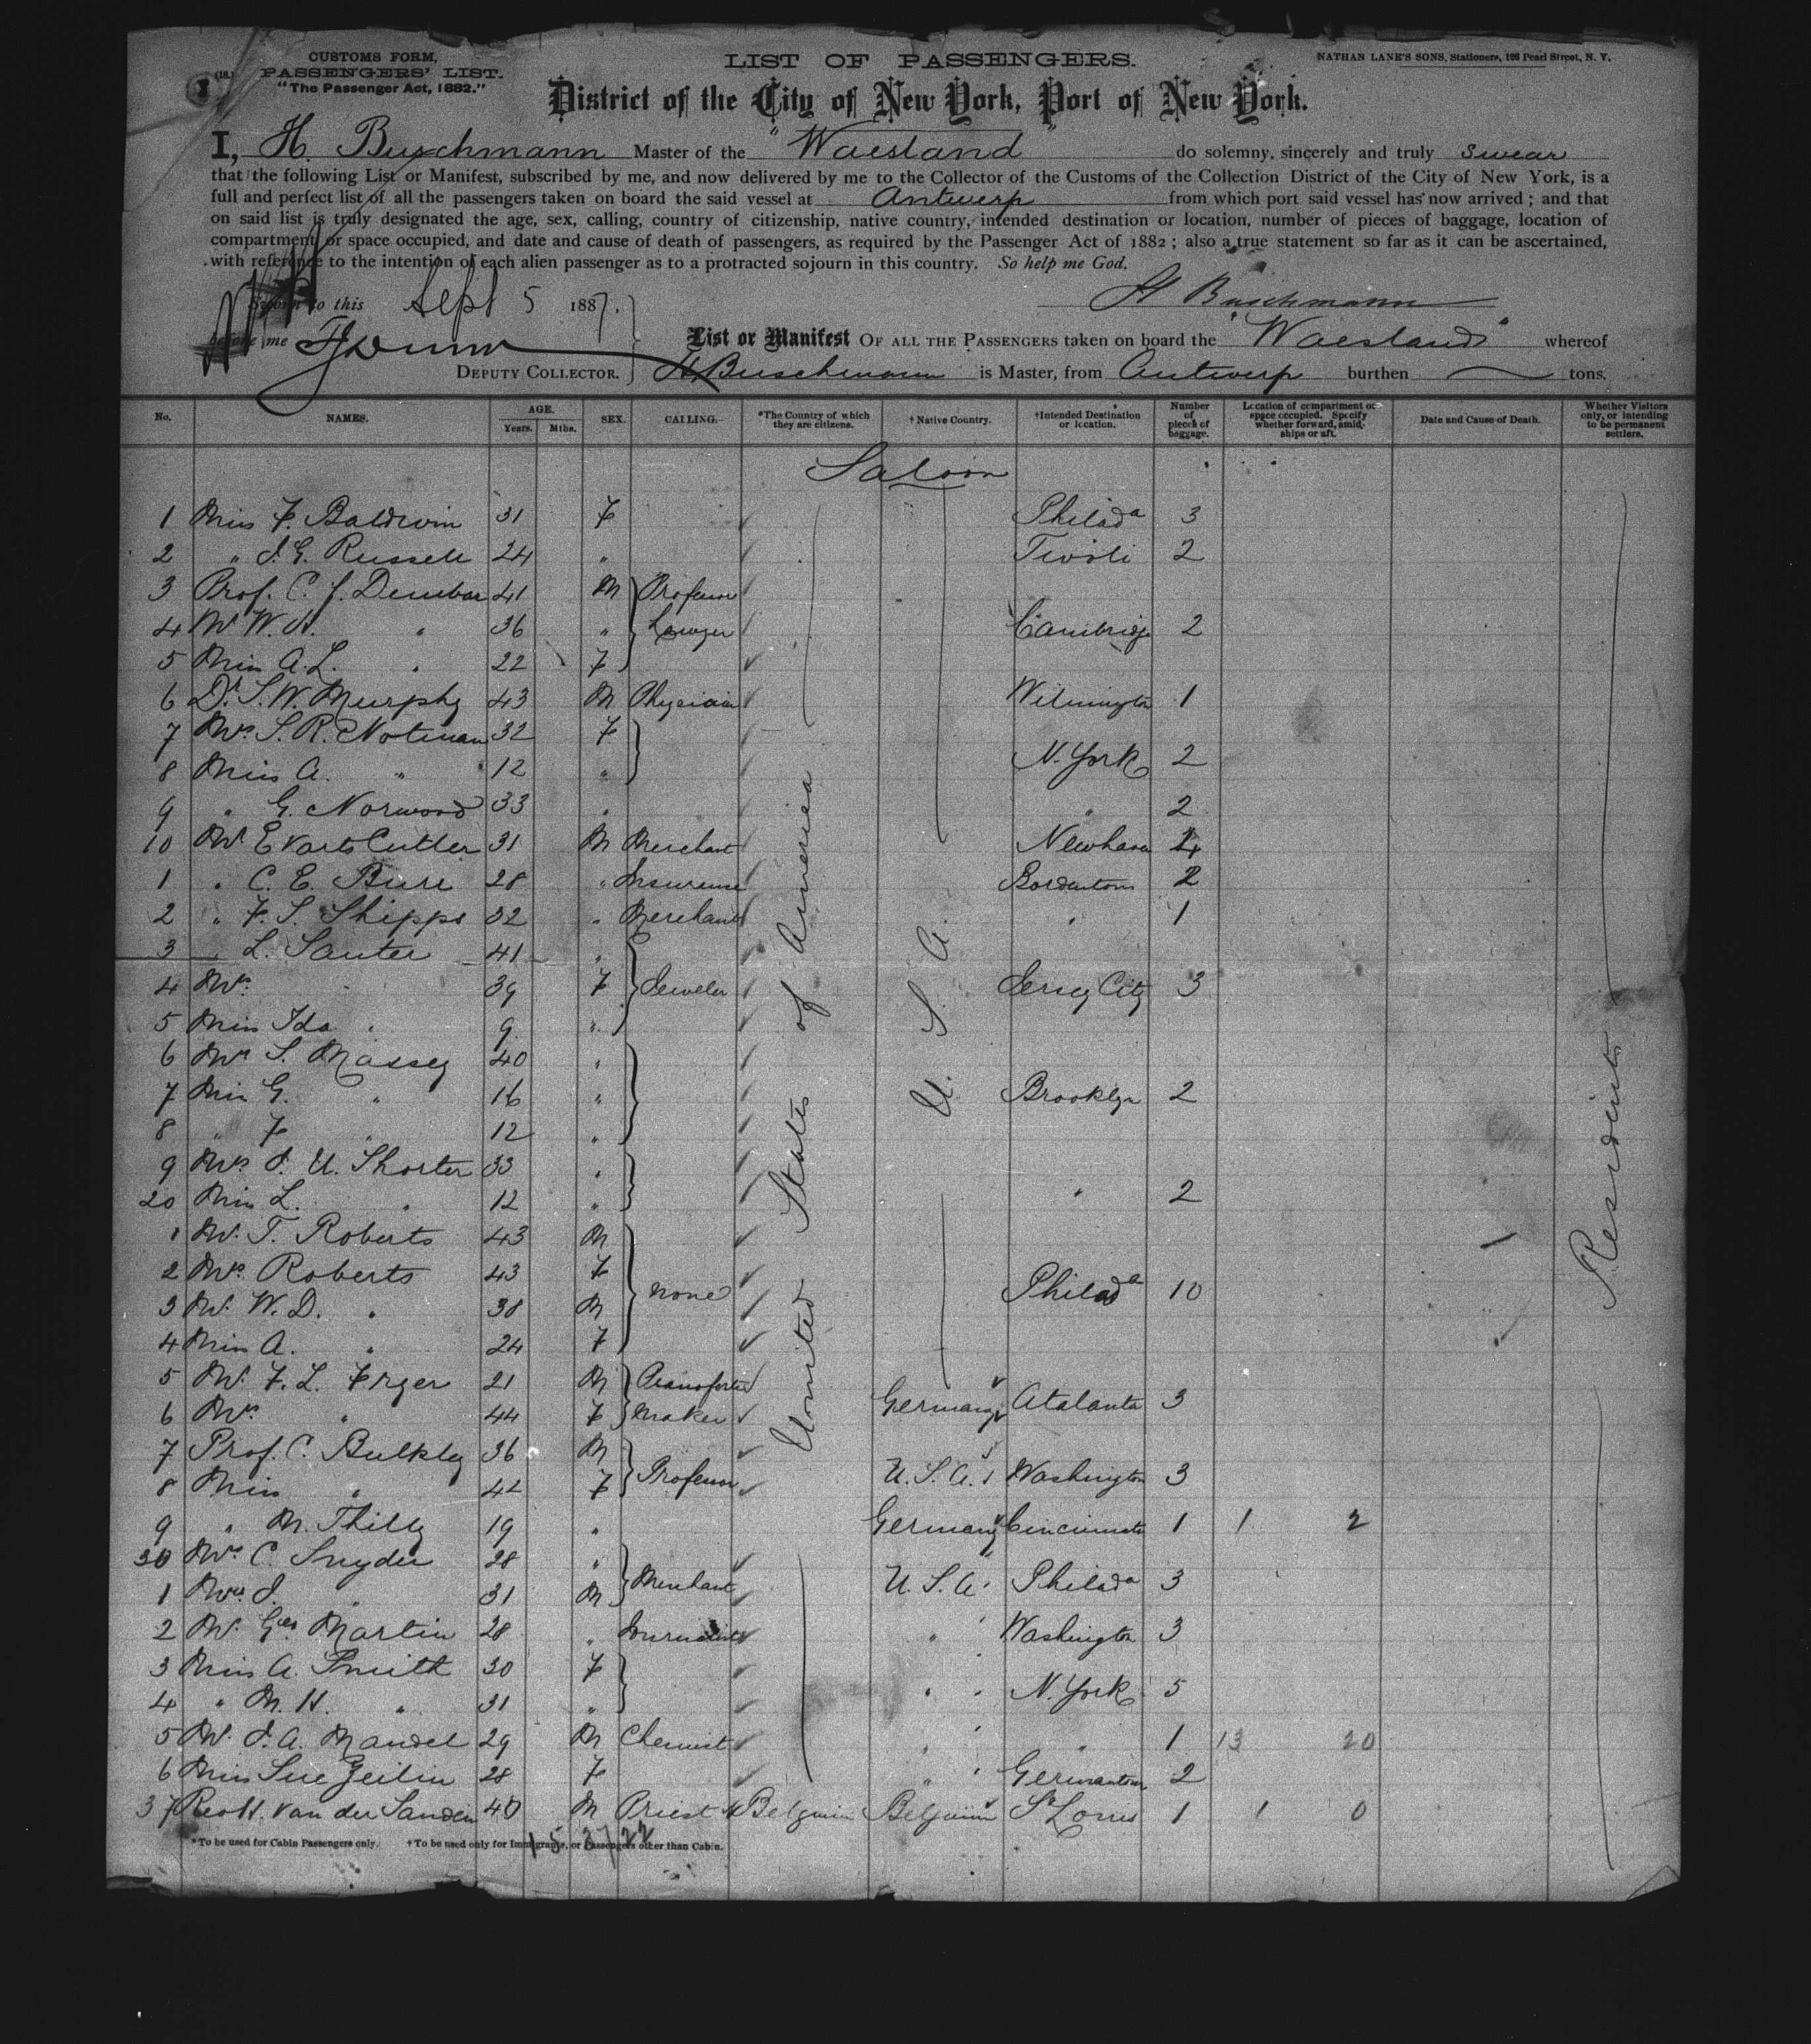 CUSTOMS FORM,
PASSENGERS' LIST.
"The Passenger Act, 1882."
LIST OF PASSENGERS.
NATHAN LANE'S SONS, Stationers, 126 Pearl Street, N. Y.
District of the City of New York, Port of New York.
I, H. Buschmann Master of the "Waesland" do solemny, sincerely and truly swear
that the following List or Manifest, subscribed by me, and now delivered by me to the Collector of the Customs of the Collection District of the City of New York, is a
full and perfect list of all the passengers taken on board the said vessel at Antwerp from which port said vessel has now arrived; and that
on said list is truly designated the age, sex, calling, country of citizenship, native country, intended destination or location, number of pieces of baggage, location of
compartment or space occupied, and date and cause of death of passengers, as required by the Passenger Act of 1882; also a true statement so far as it can be ascertained,
with reference to the intention of each alien passenger as to a protracted sojourn in this country. So help me God.
H Buschmann
Sworn to this Sept 5 1887.
before me
DEPUTY COLLECTOR.
List or Manifest OF ALL THE PASSENGERS taken on board the "Waesland" whereof
H. Buschmann is Master, from Antwerp burthen tons.
No. NAMES. AGE. Years. Mths. SEX. CALLING. *The Country of which they are citizens. † Native Country. †Intended Destination or location. Number of pieces of baggage. Location of compartment or space occupied. Specify whether forward, amidships or aft. Date and Cause of Death. Whether Visitors only, or intending to be permanent settlers.
Saloon
United States of America
U. S. A.
Residents
1 Miss F. Baldwin 31 F Philada 3
2 " J. G. Russell 24 " Tivoli 2
3 Prof. C. J. 41 M Professor
4 Mr W. H. " 36 " Lawyer Cambridge 2
5 Miss A. L. " 22 F
6 Dr S. W. Murphy 43 M Physician Wilmington 1
7 Mrs S. R. Notman 32 F
8 Miss A. " 12 " N. York 2
9 " G. Norwood 33 " " 2
10 Mr Evarts Cutler 31 M Merchant Newhaven 4
1 " C. E. Burr 28 " Insurense Bordentown 2
2 " F. S. Shipps 32 " Merchant " 1
3 " L. Sauter 41 "
4 Mrs " 39 F Jeweler Jersey City 3
5 Miss Ida " 9 "
6 Mrs S. Massey 40 "
7 Miss G. " 16 " Brooklyn 2
8 " F " 12 "
9 Mrs J. U. Shorter 33 "
20 Miss L. " 12 " " 2
1 Mr. T. Roberts 43 M
2 Mrs Roberts 43 F
3 Mr. W. D. " 38 M none Philada 10
4 Miss A. " 24 F
5 Mr. F. L. 21 M Pianoforte
6 Mrs " 44 F maker Germany Atalanta 3
7 Prof. C. Bulkley 36 M
8 Miss " 42 F Professor U. S. A. Washington 3
9 " M. Thilly 19 " Germany Cincinnati 1 1 2
30 Mrs C. Snyder 28 "
1 J. " 31 M Merchant U. S. A. Philada 3
2 Mr. Geo Martin 28 " Journalist " Washington 3
3 Miss A. Smith 30 F
4 " M. H. " 31 " " N. York 5
5 Mr. J. A. Mandel 29 M Chemist " " 1 13 20
6 Miss Sue Zeilin 28 F " Germantown 2
37 Rev H. van der Sanden 40 M Priest Belgium Belgium St Louis 1 1 0
*To be used for Cabin Passengers only. †To be used only for Immigrants, or Passengers other than Cabin.